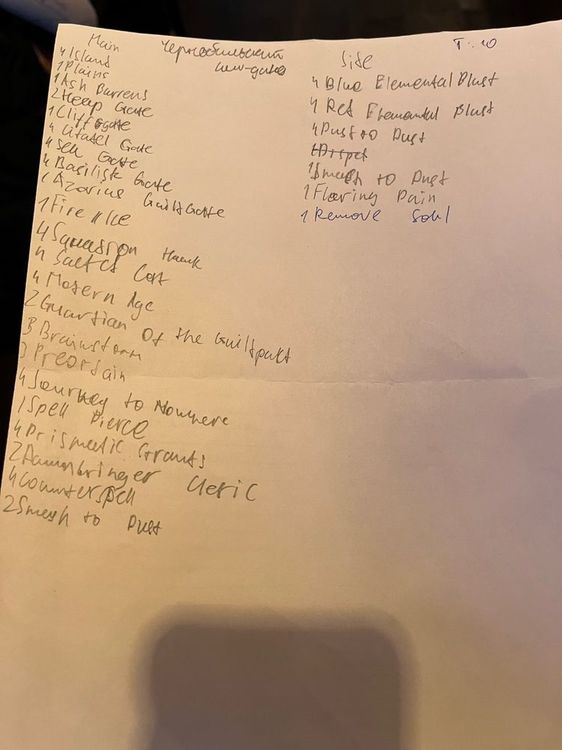 Main
4 Island
1 Plains
1 Ash Barrens
2 Heap Gate
1 Cliffgate
4 Citatel Gate
4 Sea Gate
4 Basilisk Gate
1 Azorius Guildgate
1 Fire // Ice
4 Squadron Hawk
4 Sacred Cat
4 Modern Age
2 Guardian Of the Guildpakt
3 Brainstorm
3 Preordain
4 Journey to Nowhere
1 Spell Pierce
4 Prismatic Strands
2 Dawnbringer Cleric
4 Counterspell
2 Smash to Dust
Чернобыльский
new-gates
Side
T: 10
4 Blue Elemental Blast
4 Red Elemental Blast
4 Dust to Dust
1 Dispel
1 Smash to Dust
1 Flaring Pain
1 Remove Soul